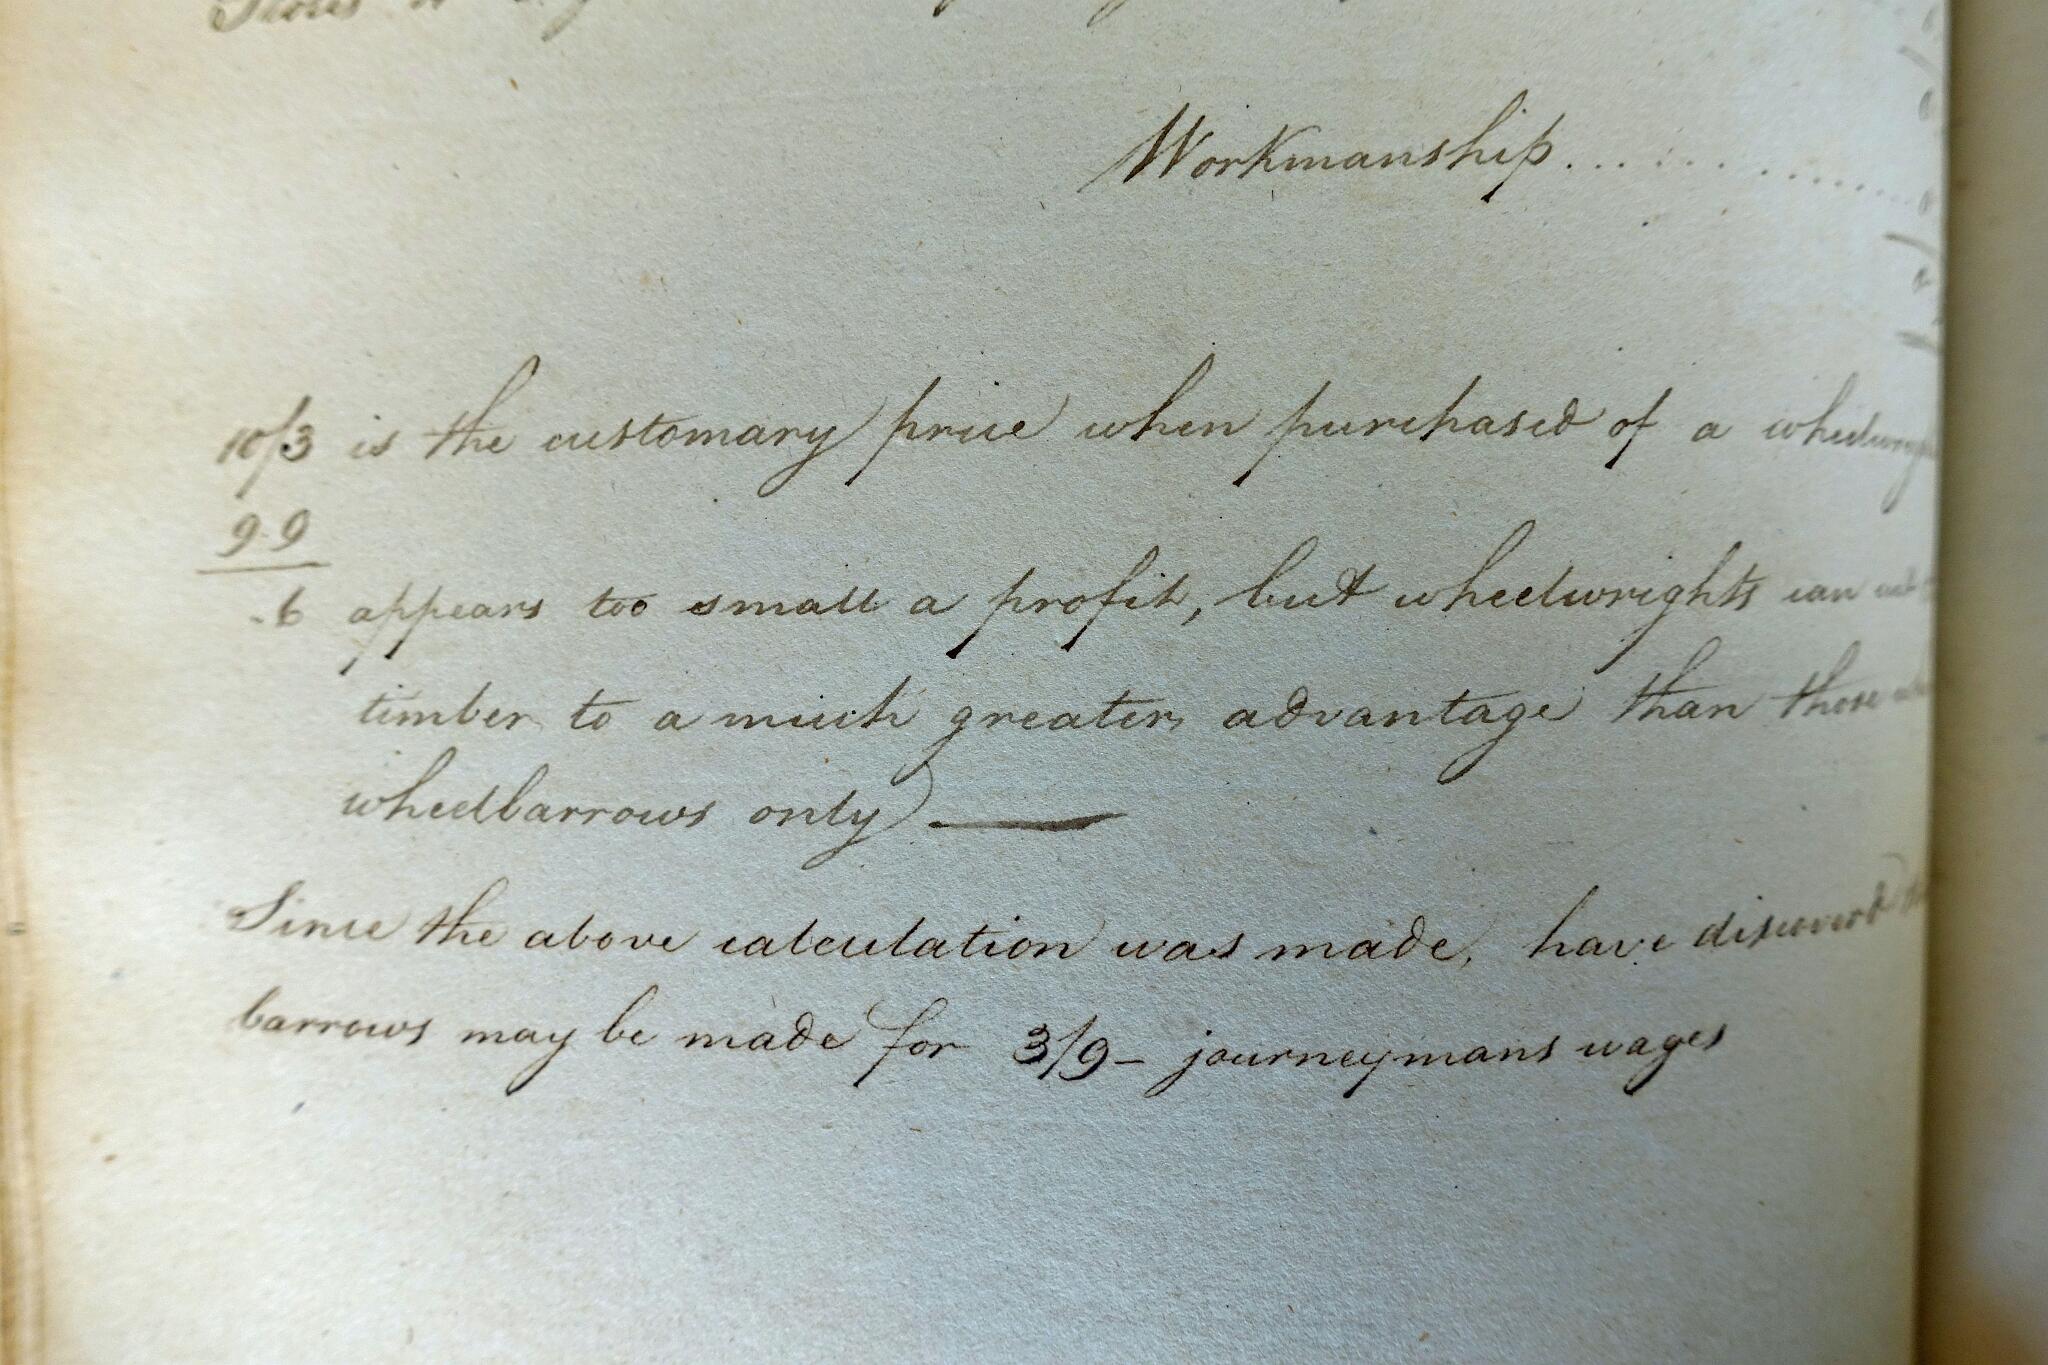 Workmanship..............
10/3 is the customary price when purchased of a
9.9
.6 appears too small a profit, but wheelwrights can cut
timber to a much greater advantage than those
wheelbarrows only —
Since the above calculation was made, have discoverd
barrows may be made for 3/9– journeymans wages